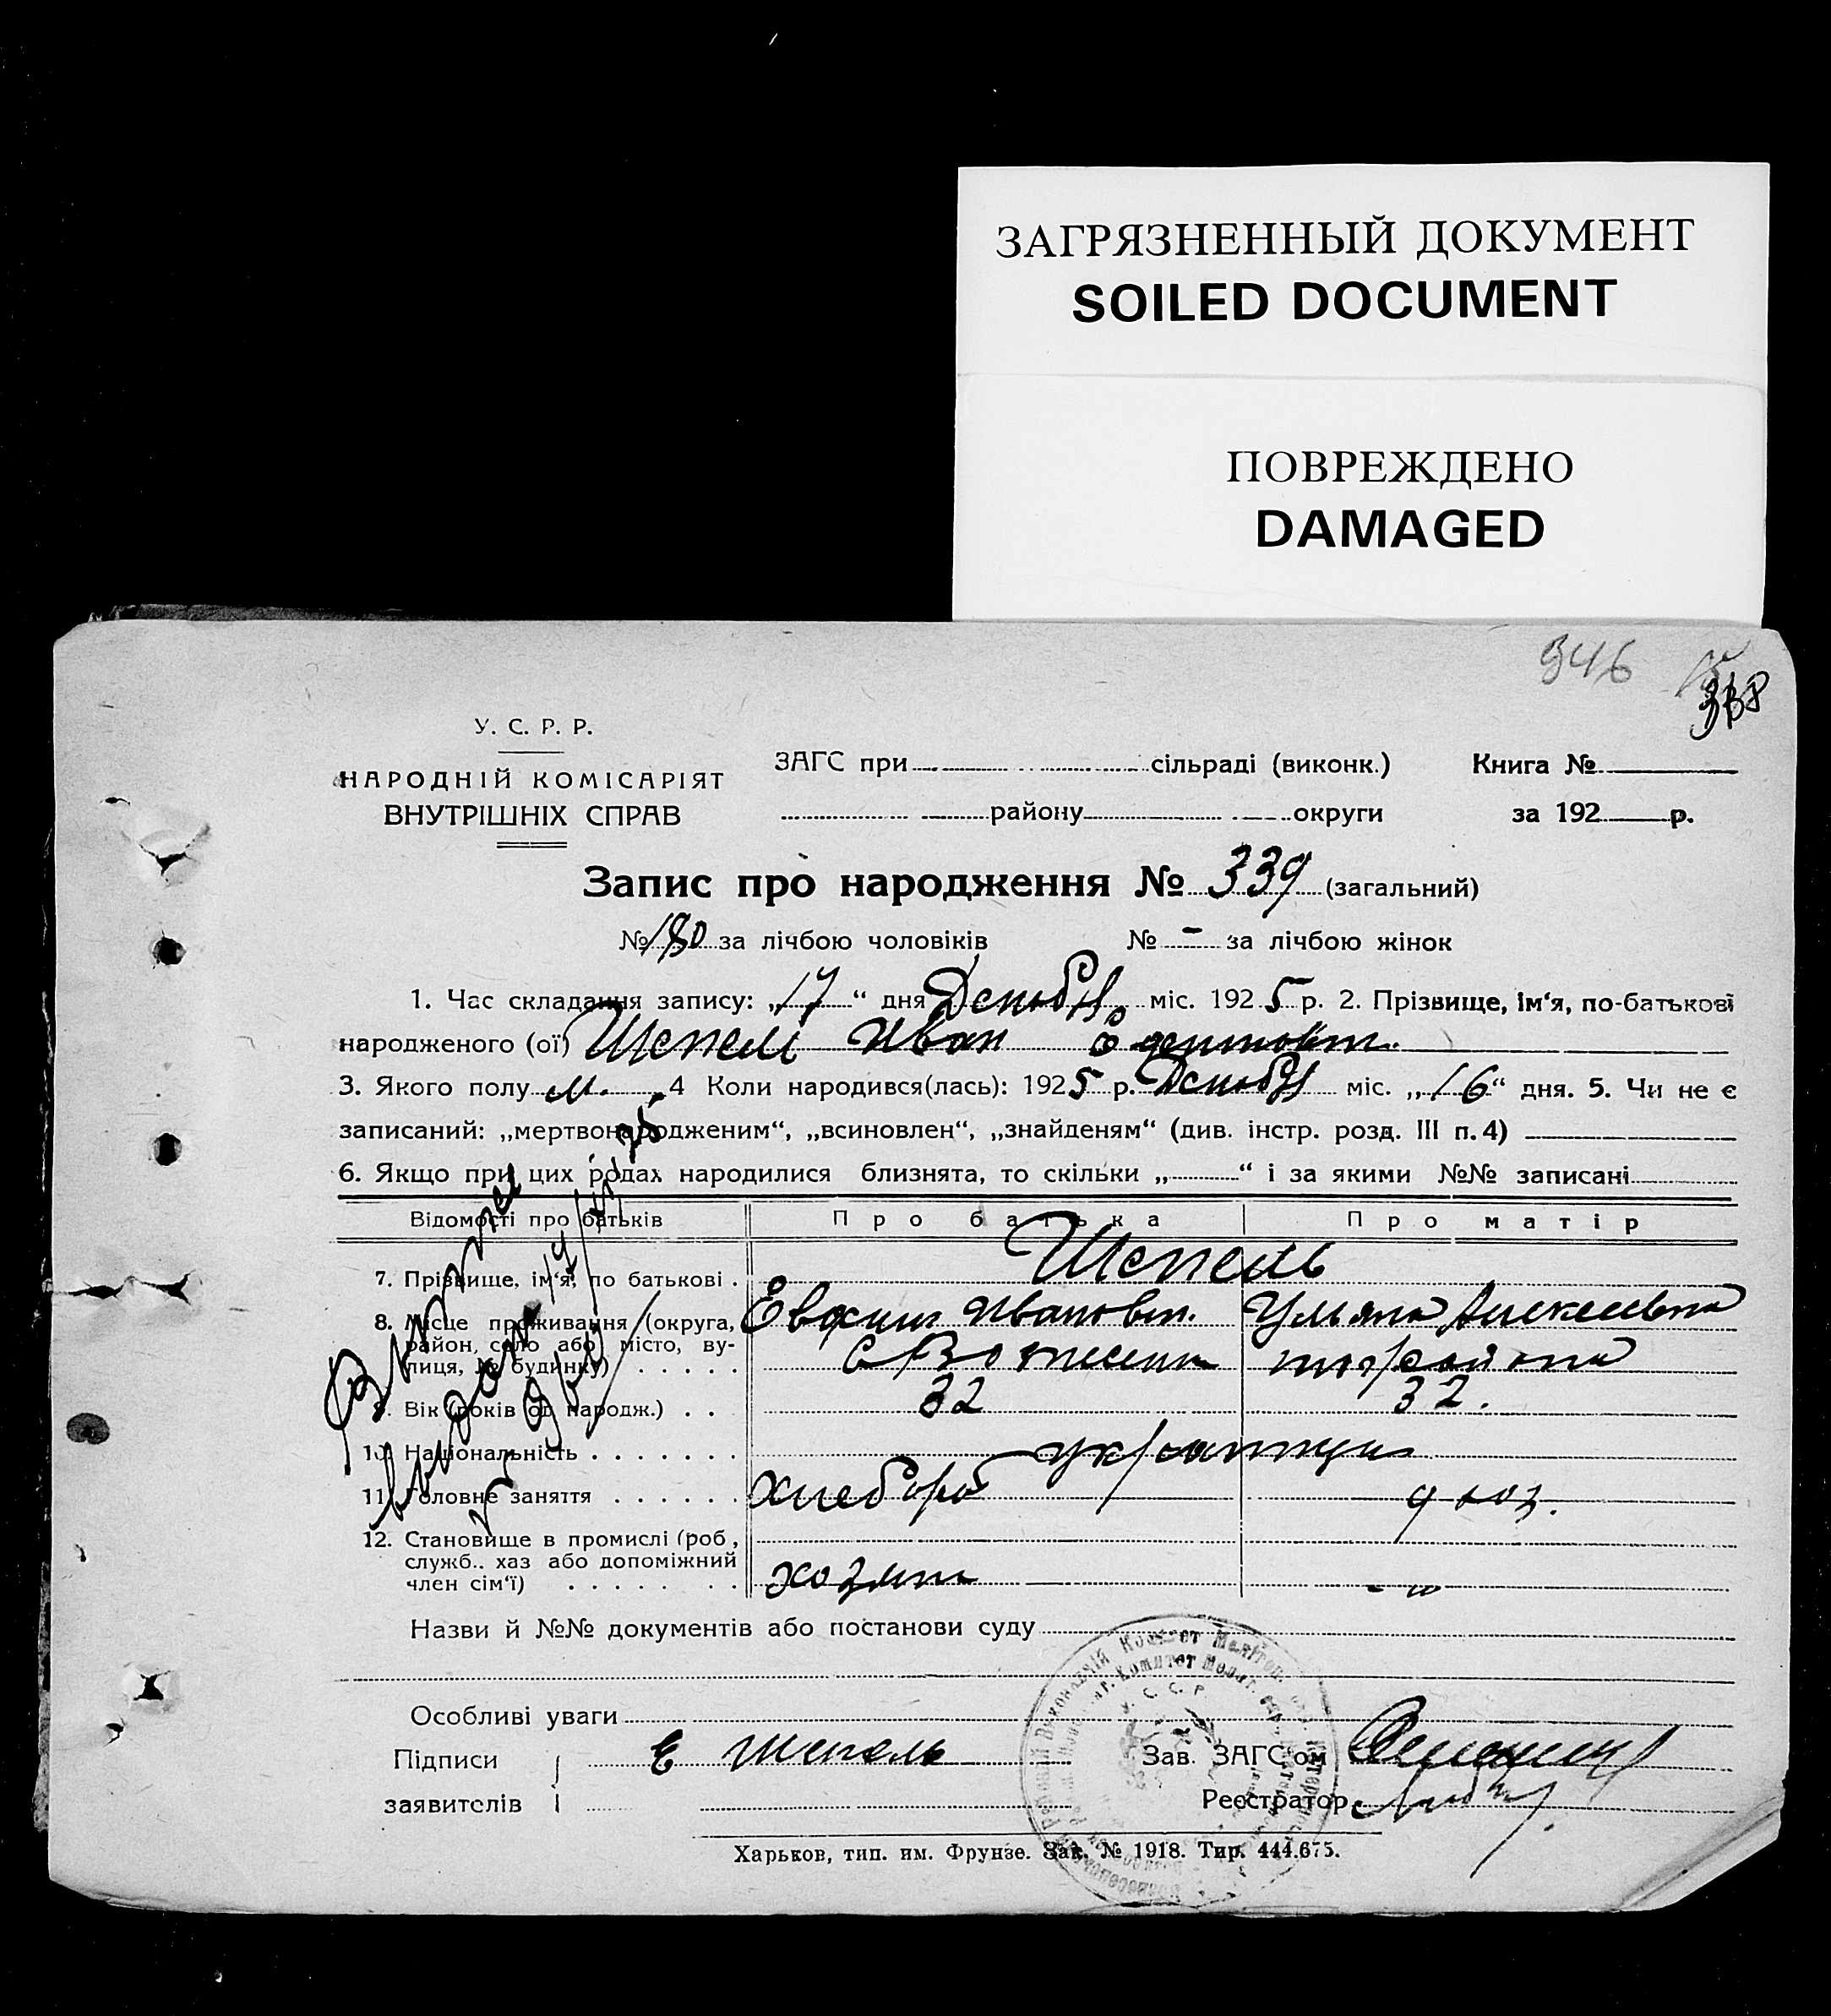 ЗАГРЯЗНЕННЫЙ ДОКУМЕНТ
SOILED DOCUMENT
ПОВРЕЖДЕНО
DAMAGED
946
У. С. Р. Р.
НАРОДНІЙ КОМІСАРІЯТ
ВНУТРІШНІХ СПРАВ
ЗАГС при сільраді (виконк.) Книга №
району округи за 192 р.
Запис про народження № 339 (загальний)
№ 180 за лічбою чоловіків № - за лічбою жінок
1. Час складання запису: „17“ дня Декабря міс. 1925 р. 2. Прізвище, ім‘я, по-батькові
народженого (ої) Шепель Иван
3. Якого полу м. 4 Коли народився(лась): 1925 р. Декабря міс. „16“ дня. 5. Чи не є
записаний: „мертвонародженим“, „всиновлен“, „знайденям“ (див. інстр. розд. III п. 4)
6. Якщо при цих родах народилися близнята, то скільки „ “ і за якими №№ записані
Відомості про батьків Про батька Про матір
7. Прізвище, ім‘я, по батькові . Шепель
Иванов. Ульяна Алексеевна
8. Місце проживання (округа,
район, село або місто, ву-
лиця, № будинку) . . . . . с Вознесенка
9. Вік (років од народж.) . . 32 32.
10. Національність . . . . . . . украинцы
11. Головне заняття . . . . . . хлебороб д хоз.
12. Становище в промислі (роб.,
служб.. хаз або допоміжний
член сім‘ї) . . . . . . . хозяин - "
Назви й №№ документів або постанови суду
Особливі уваги
Підписи Е Шепель Зав. ЗАГС‘ом
заявителів Реєстратор
Харьков, тип. им. Фрунзе. Зак. № 1918. Тир. 444.675.